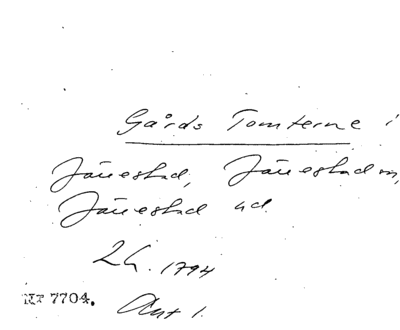 Gårds Tomterne i
Järrestad, Järrestad m,
Järrestad ud
24. 1794
NF 7704.
Ant 1.